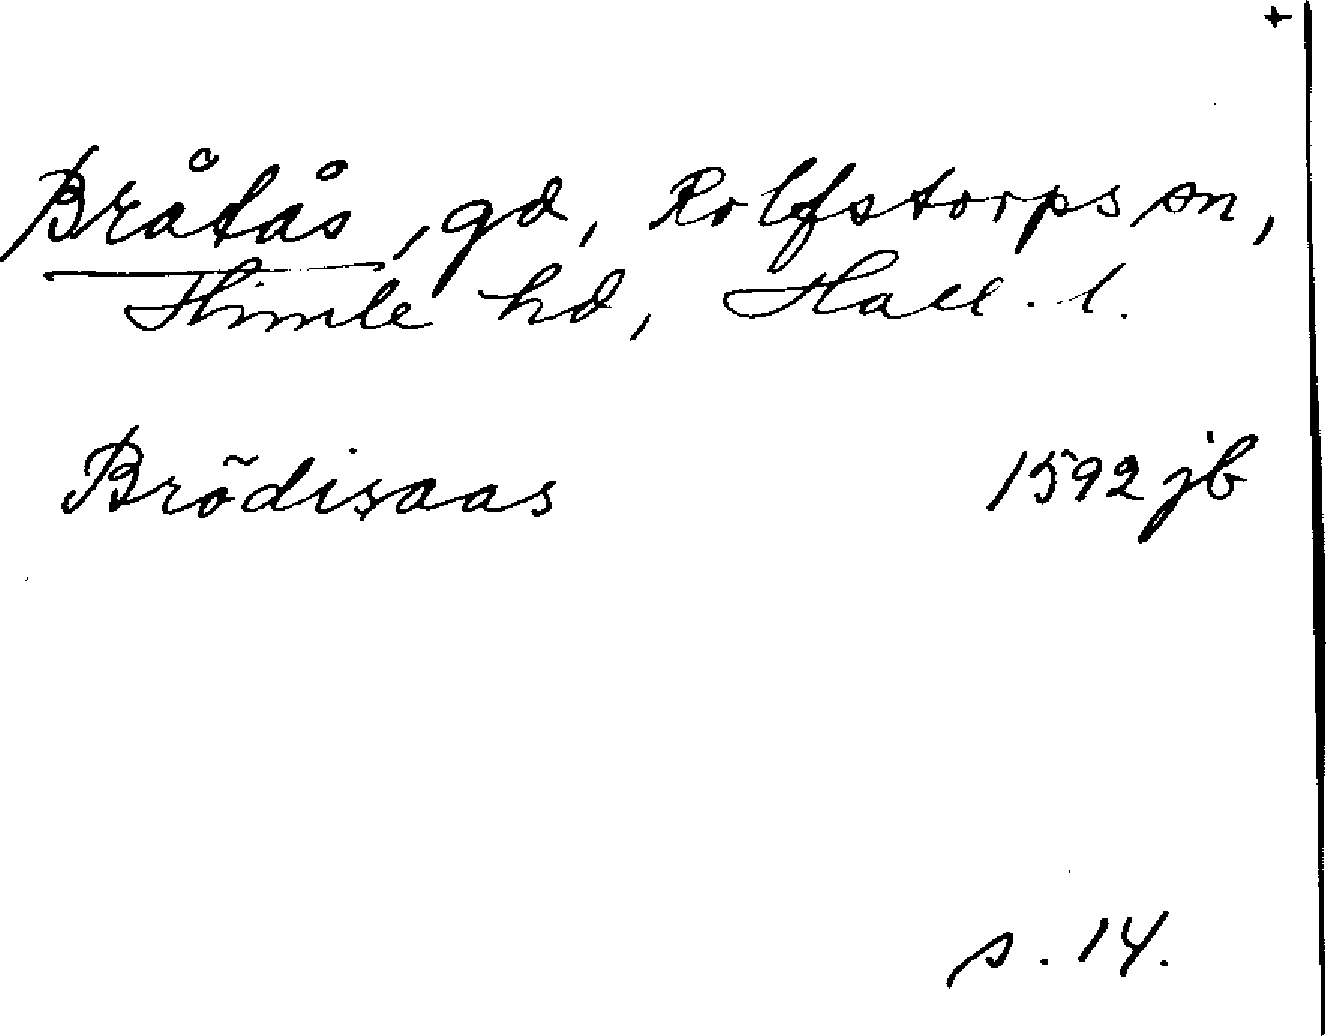 +
Bråtås, gd, Rolfstorps sn,
Himle hd, Hall. l.
Brõdisaas 1592 jb
s. 14.